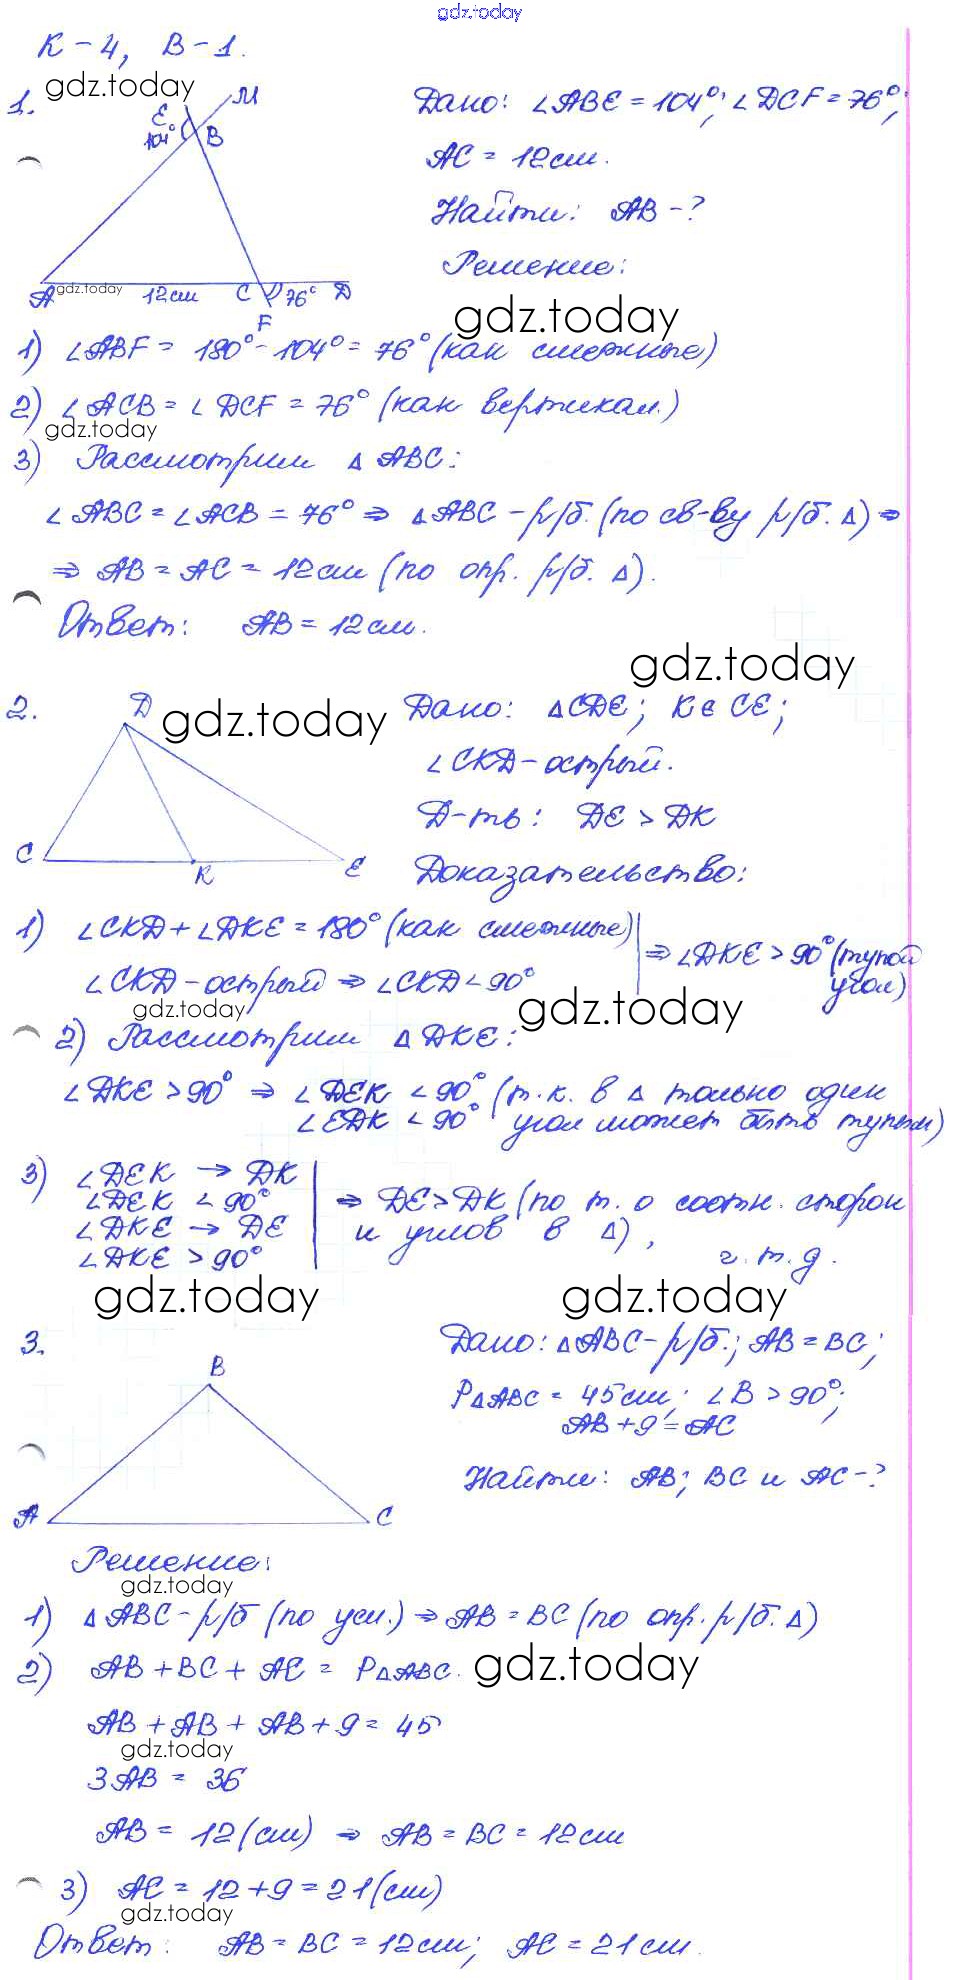 gdz.today
К-4, В-1.
gdz.today
1.
E
M
104°
B
A
gdz.today
12см
C
76°
D
F
Дано: ∠ABE = 104°; ∠DCF = 76°;
AC = 12см.
Найти: AB - ?
Решение:
gdz.today
1) ∠ABF = 180° - 104° = 76° (как смежные)
2) ∠ACB = ∠DCF = 76° (как вертикал.)
gdz.today
3) Рассмотрим △ABC:
∠ABC = ∠ACB = 76° ⇒ △ABC - р/б. (по св-ву р/б. △) ⇒
⇒ AB = AC = 12см (по опр. р/б. △).
Ответ: AB = 12см.
gdz.today
2.
D
gdz.today
C
K
E
Дано: △CDE; K ∈ CE;
∠CKD - острый.
Д-ть: DE > DK
Доказательство:
1) ∠CKD + ∠DKE = 180° (как смежные)
∠CKD - острый ⇒ ∠CKD < 90°
⇒ ∠DKE > 90° (тупой
угол)
gdz.today
gdz.today
2) Рассмотрим △DKE:
∠DKE > 90° ⇒ ∠DEK < 90° (т.к. в △ только один
∠EDK < 90° угол может быть тупым)
3) ∠DEK → DK
∠DEK < 90°
∠DKE → DE
∠DKE > 90°
⇒ DE > DK (по т. о соотн. сторон
и углов в △),
ч.т.д.
gdz.today
gdz.today
3.
B
A
C
Дано: △ABC - р/б.; AB = BC;
P△ABC = 45см; ∠B > 90°;
AB + 9 = AC
Найти: AB; BC и AC - ?
Решение:
gdz.today
1) △ABC - р/б (по усл.) ⇒ AB = BC (по опр. р/б. △)
2) AB + BC + AC = P△ABC.
gdz.today
AB + AB + AB + 9 = 45
gdz.today
3AB = 36
AB = 12 (см) ⇒ AB = BC = 12см
3) AC = 12 + 9 = 21 (см)
gdz.today
Ответ: AB = BC = 12см; AC = 21см.